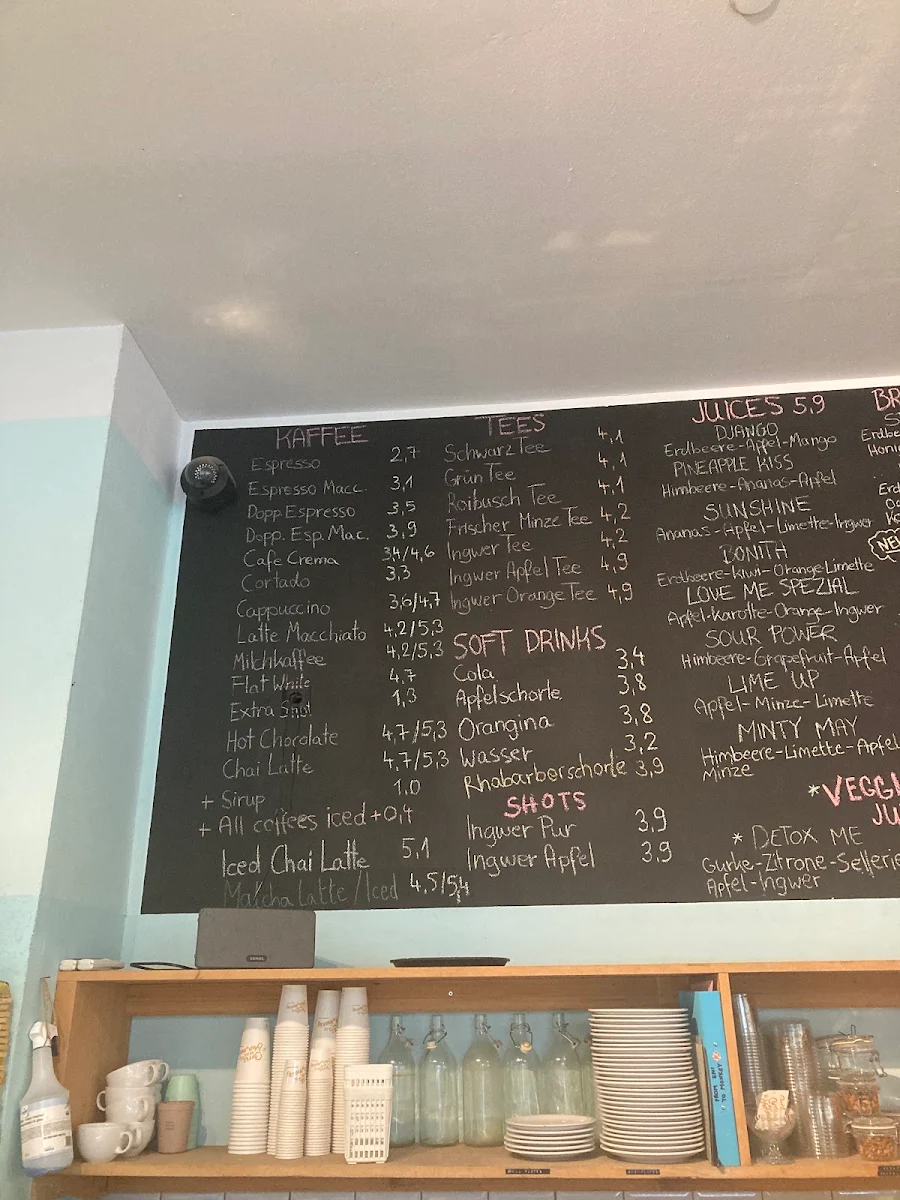 KAFFEE
Espresso 2,7
Espresso Macc. 3,1
Dopp. Espresso 3,5
Dopp. Esp. Mac. 3,9
Cafe Crema 3,4/4,6
Cortado 3,3
Cappuccino 3,6/4,7
Latte Macchiato 4,2/5,3
Milchkaffee 4,2/5,3
Flat White 4,7
Extra Shot 1,3
Hot Chocolate 4,7/5,3
Chai Latte 4,7/5,3
+ Sirup 1,0
+ All coffees iced +0,4
Iced Chai Latte 5,1
Matcha Latte/Iced 4,5/5,4
TEES
Schwarz Tee 4,1
Grün Tee 4,1
Roibusch Tee 4,1
Frischer Minze Tee 4,2
Ingwer Tee 4,2
Ingwer Apfel Tee 4,9
Ingwer Orange Tee 4,9
SOFT DRINKS
Cola 3,4
Apfelschorle 3,8
Orangina 3,8
Wasser 3,2
Rhabarberschorle 3,9
SHOTS
Ingwer Pur 3,9
Ingwer Apfel 3,9
JUICES 5,9
DJANGO
Erdbeere-Apfel-Mango
PINEAPPLE KISS
Himbeere-Ananas-Apfel
SUNSHINE
Ananas-Apfel-Limette-Ingwer
BONITH
Erdbeere-Kiwi-Orange-Limette
LOVE ME SPEZIAL
Apfel-Karotte-Orange-Ingwer
SOUR POWER
Himbeere-Grapefruit-Apfel
LIME UP
Apfel-Minze-Limette
MINTY MAY
Himbeere-Limette-Apfel
Minze
*VEGGI
JU
* DETOX ME
Gurke-Zitrone-Sellerie
Apfel-Ingwer
BR
Erdbe
Honig
Erd
NEU
SONOS
FROM EMI
TO MONKEY